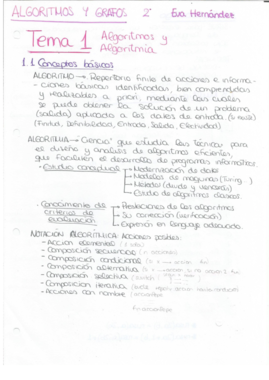 ALGORITMOS Y GRAFOS 2º Eva Hernández
Tema 1 Algoritmos y
Algoritmia
1.1 Conceptos básicos
ALGORITMO → Repertorio finito de acciones e informa-
ciones básicas identificadas, bien comprendidas
y realizables a priori, mediante las cuales
se puede obtener la solución de un problema
(salida) aplicado a los datos de entrada.
(Finitud, Definibilidad, Entrada, Salida, Efectividad)
ALGORITMIA → Ciencia que estudia las técnicas para
el diseño y análisis de algoritmos eficientes,
que faciliten el desarrollo de programas informáticos
- Estudio conceptual → Modernización de datos
→ Modelos de máquinas (Turing)
→ Métodos (divide y vencerás)
→ Estudio de algoritmos clásicos
- Conocimiento de → Prestaciones de los algoritmos
criterios de → Su corrección (verificación)
evaluación → Expresión en lenguaje adecuado.
NOTACIÓN ALGORÍTMICA: Acciones posibles:
- Acción elemental
- Composición secuencial
- Composición condicional
- Composición alternativa
- Composición selectiva
- Composición iterativa
- Acciones con nombre